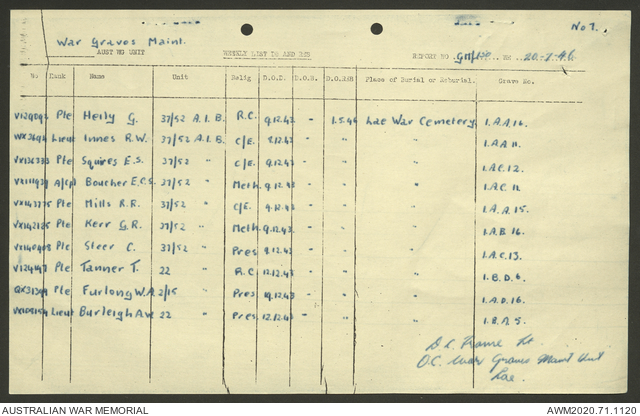 No 1.
War Graves Maint.
AUST WG UNIT WEEKLY LIST TO AND RES REPORT NO WE 20-7-46
No Rank Name Unit Relig D.O.D. D.O.B. D.O.R(B) Place of Burial or Reburial. Grave No.
Pte Heily G. 37/52 A.I.B. R.C. 9.12.43 " 1.5.46 Lae War Cemetery 1.A.A.16.
Lieut Innes R.W. 37/52 A.I.B. C/E. 9.12.43 " " " 1.A.A.11.
Pte Squires E.S. 37/52 " C/E. 9.12.43 " " " 1.A.C.12.
A/Cpl Boucher E.C.S. 37/52 " Meth. 9.12.43 " " " 1.A.C.11.
Pte Mills R.R. 37/52 " C/E. 9.12.43 " " " 1.A.A.15.
VX142125 Pte Kerr G.R. 37/52 " Meth. 9.12.43 " " " 1.A.B.16
Pte Steer C. 37/52 " Pres 9.12.43 " " " 1.A.C.13.
Pte Tanner T. 22 " R.C. 12.12.43 " " " 1.B.D.6.
Pte Furlong W.A. 2/15 " Pres 19.12.43 " " " 1.A.D.16.
Lieut Burleigh A.W. 22 " Pres 12.12.43 " " " 1.B.A.5.
Lt
O.C. War Graves Maint Unit
Lae.
AUSTRALIAN WAR MEMORIAL AWM2020.71.1120